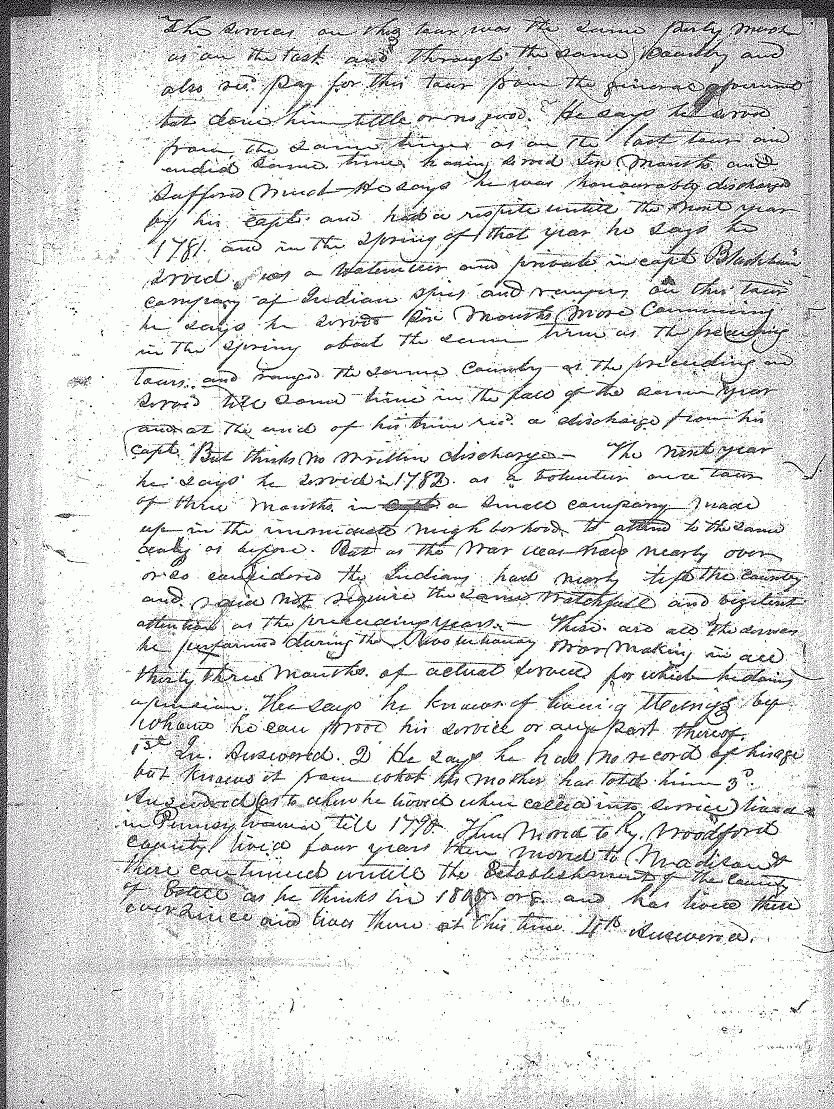 The services on this tour was the same pretty much
as on the last and through the same Country and
also recd. pay for this tour from the general government
but done him little or no good. He says he served
from the same time as on the last tour and
ended same time, having served Six Months and
suffered much He says he was honourably discharged
by his capt. and had a respite untill the next year
1781. and in the Spring of that year he says he
served as a Volunteer and private in capt Blackburn
company of Indian spies and rangers, on this tour
he says he served Six Months More Commencing
in the spring about the same time as the preceeding
tours, and ranged the same Country as the preceeding and
served till same time in the fall of the same year
and at the end of his time recd. a discharge from his
capt. But thinks no written discharge — The next year
he says he served in 1782 as a Volunteer one tour
of three Months in a small company made
up in the immediate neighborhood to attend to the same
duty as before. But as the War was nearly over
or so considered the Indians had nearly left the country
and did not require the same watchfull and vigilent
attention as the preceeding years. — These are all the services
he performed during the Revolutionary War making in all
thirty three Months of actual service for which he claims
a pension. He says he knows of living by
whom he can prove his service or any part thereof.
1st In. Answered. 2d He says he has no record of his age
but knows it from what his mother has told him 3d.
Answered (as to where he lived when called into service) lived
in Pennsylvania till 1790. Then Moved to Ky. Woodford
county lived four years then moved to Madison &
there continued untill the Establishment of the county
of Estill as he thinks in 1808 or 9. and has lived there
ever since and lives there at this time 4th Answered.